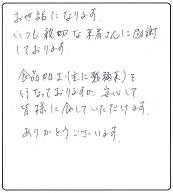 お世話になります。
いつも親切な業者さんに感謝
しております
食品加工(主に鶏糖末)を
行なっておりますが、安心して
皆様に食していただけます。
ありがとうございます。